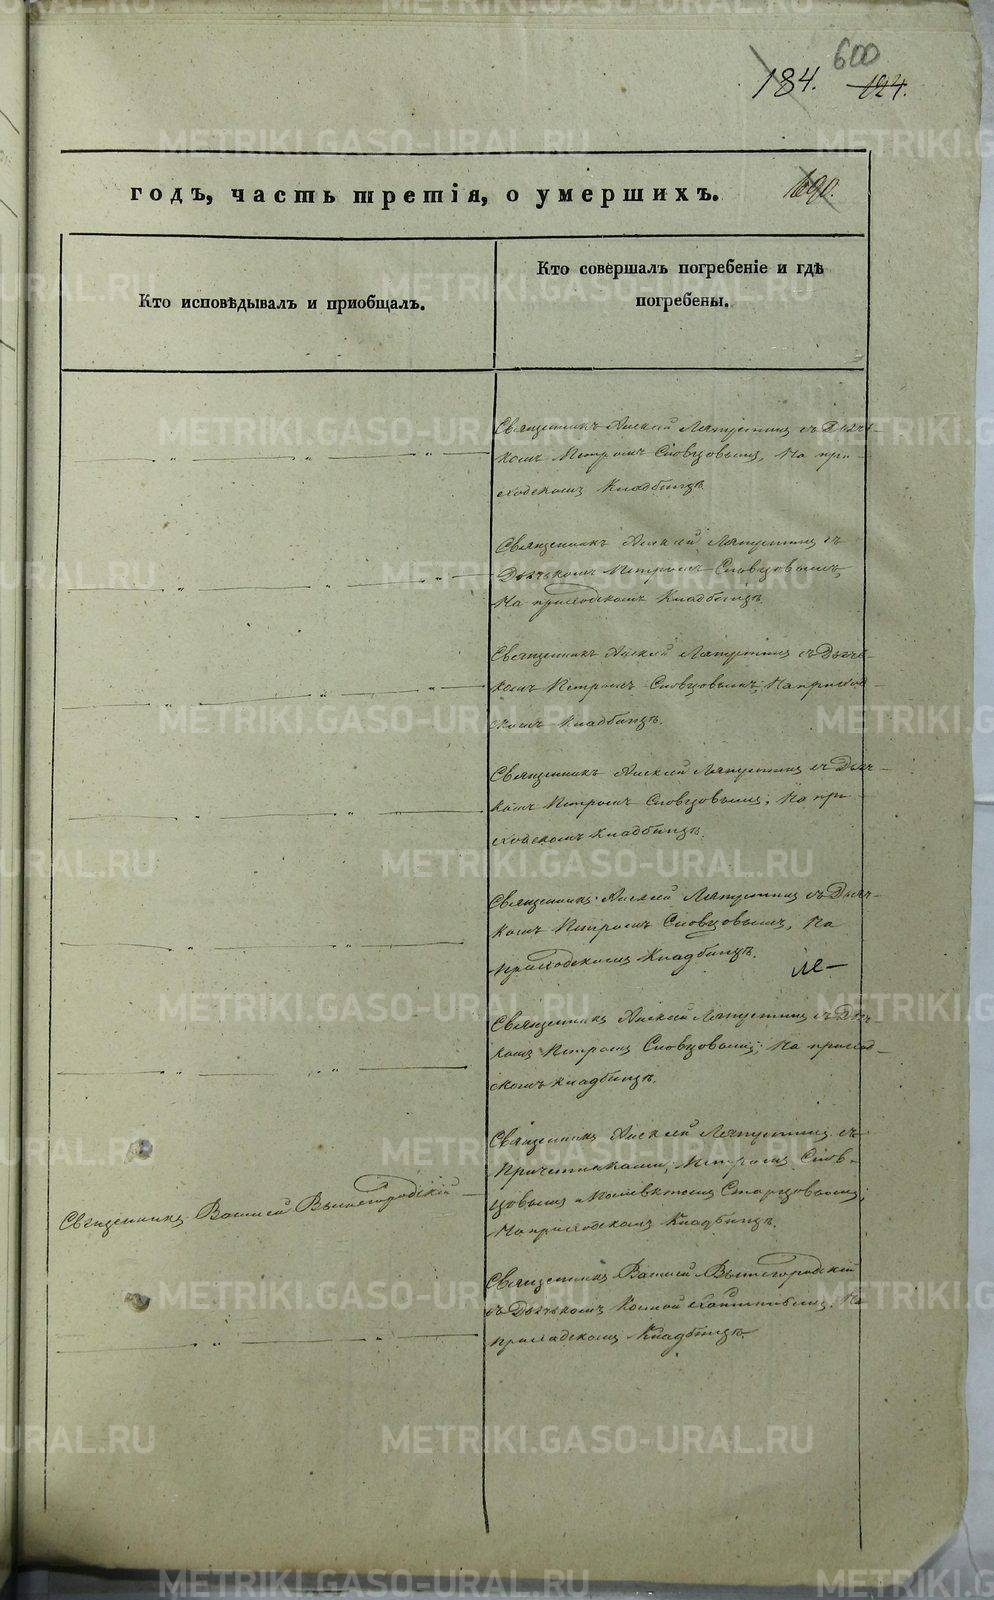 600
184. 124.
годъ, часть третія, о умершихъ. 690.
Кто исповѣдывалъ и приобщалъ.
Кто совершалъ погребеніе и гдѣ
погребены.
Священникъ Алексѣй Ляпустинъ съ Дьяч-
комъ Петромъ Словцовымъ, На при-
ходскомъ Кладбищѣ.
Священникъ Алексѣй Ляпустинъ съ
Дьячькомъ Петромъ Словцовымъ,
На приходскомъ Кладбищѣ.
Священникъ Алексѣй Ляпустинъ съ Дьячь-
комъ Петромъ Словцовымъ; На приход-
скомъ Кладбищѣ.
Священникъ Алексѣй Ляпустинъ съ Дьяч-
комъ Петромъ Словцовымъ; На при-
ходскомъ Кладбищѣ.
Священникъ Алексѣй Ляпустинъ съ Дьяч-
комъ Петромъ Словцовымъ, На
приходскомъ Кладбищѣ.
Священникъ Алексѣй Ляпустинъ съ Дьяч-
комъ Петромъ Словцовымъ; На приход-
скомъ кладбищѣ.
Священникъ Алексѣй Ляпустинъ съ
Причетниками, Петромъ Слов-
цовымъ и Старцовымъ;
На приходскомъ Кладбищѣ.
Священникъ Василій Вышегородскій
Священникъ Василій Вышегородскій
съ Дьячькомъ На
приходскомъ Кладбищѣ
METRIKI.GASO-URAL.RU